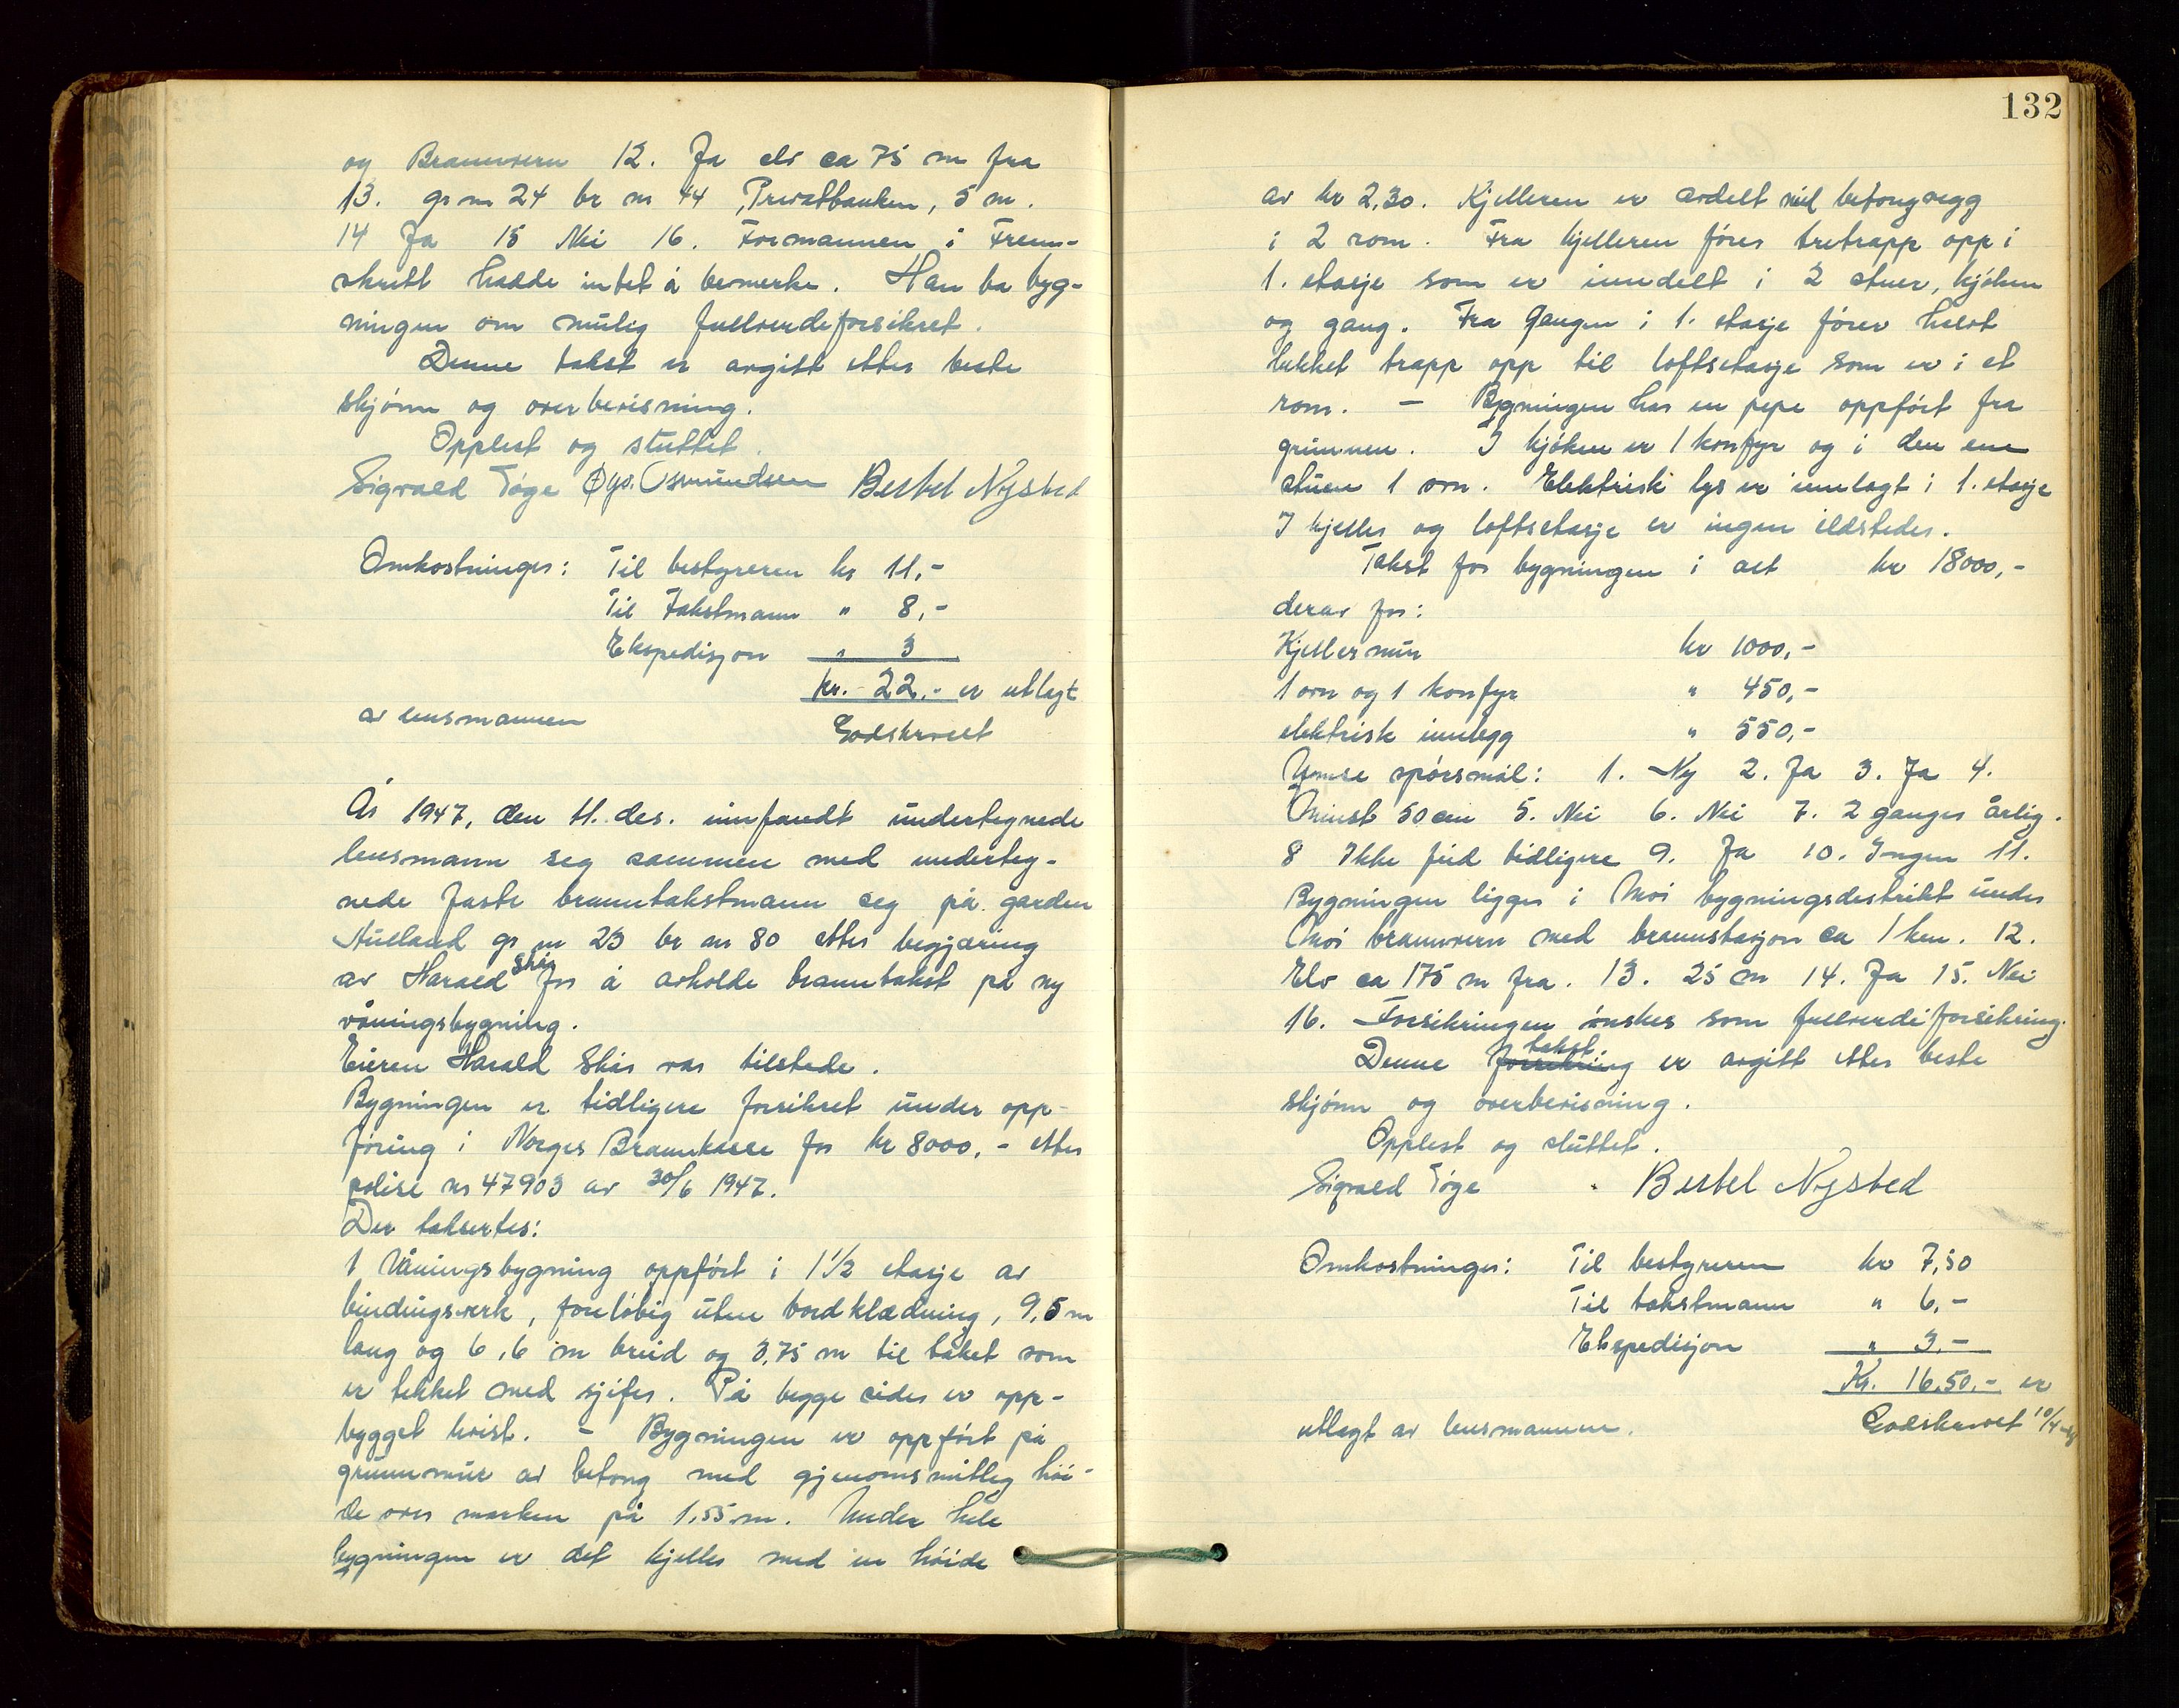 og Brannvern 12. Ja elv ca 75 m fra
13. gr nr 24 br nr 44 "Privatbanken, 5 m.
14 Ja 15 Nei 16. Formannen i Frem-
skritt hadde intet å bemerke. Han ba byg-
ningen om mulig fullverdiforsikret.
Denne takst er avgitt etter beste
skjønn og overbevisning.
Opplest og sluttet.
Sigvald Tøge Osmundsen Bertel Nysted
Omkostninger: Til bestyreren kr 11,-
Til Takstmann " 8,-
Ekspedisjon " 3
kr. 22.- er utlagt
av lensmannen Godskrevet
År 1947, den 11. des. innfandt undertegnede
lensmann seg sammen med underteg-
nede faste branntakstmann seg på garden
Aulland gr nr 23 br nr 80 etter begjæring
av Harald Skår for å avholde branntakst på ny
våningsbygning.
Eieren Harald Skår var tilstede.
Bygningen er tidligere forsikret under opp-
føring i Norges Brannkasse for kr 8000,- etter
polise nr 47903 av 30/6 1947.
Der takseres:
1 Våningsbygning oppført i 1 1/2 etasje av
bindingsverk, foreløbig uten bordklædning, 9,5 m
lang og 6,6 m breid og 3,75 m til taket som
er tekket med sjifer. På begge sider er opp-
bygget kvist. - Bygningen er oppført på
grunnmur av betong med gjenomsnitlig høi-
de over marken på 1,55 m. Under hele
bygningen er det kjeller med en høide
132
av kr 2,30. Kjelleren er avdelt med betongvegg
i 2 rom. Fra kjelleren fører tretrapp opp i
1. etasje som er inndelt i 2 stuer, kjøken
og gang. Fra Gangen i 1. etasje fører halvt
lukket trapp opp til loftsetasje som er i et
rom. - Bygningen har en pipe oppført fra
grunnen. I kjøken er 1 konfyr og i den ene
stuen 1 ovn. Elektrisk lys er innlagt i 1. etasje
I kjeller og loftsetasje er ingen ildsteder.
Takst for bygningen i alt kr 18000,-
derav for:
Kjellermur kr 1000,-
1 ovn og 1 konfyr " 450,-
elektrisk innlegg " 550,-
Ymse spørsmål: 1. Ny 2. Ja 3. Ja 4.
Minst 50 cm 5. Nei 6. Nei 7. 2 ganger årlig.
8 Ikke feid tidligere 9. Ja 10. Ingen 11.
Bygningen ligger i Moi bygningsdistrikt under
Moi brannvern med brannstasjon ca 1 km. 12.
Elv ca 175 m fra. 13. 25 m 14. Ja 15. Nei
16. Forsikringen ønskes som fullverdiforsikring.
Denne forsikring takst er avgitt etter beste
skjønn og overbevisning.
Opplest og sluttet.
Sigvald Tøge Bertel Nysted
Omkostninger: Til bestyreren kr 7,50
Til takstmann " 6,-
Ekspedisjon " 3,-
Kr. 16.50,- er
utlagt av lensmannen. Godskrevet 10/4